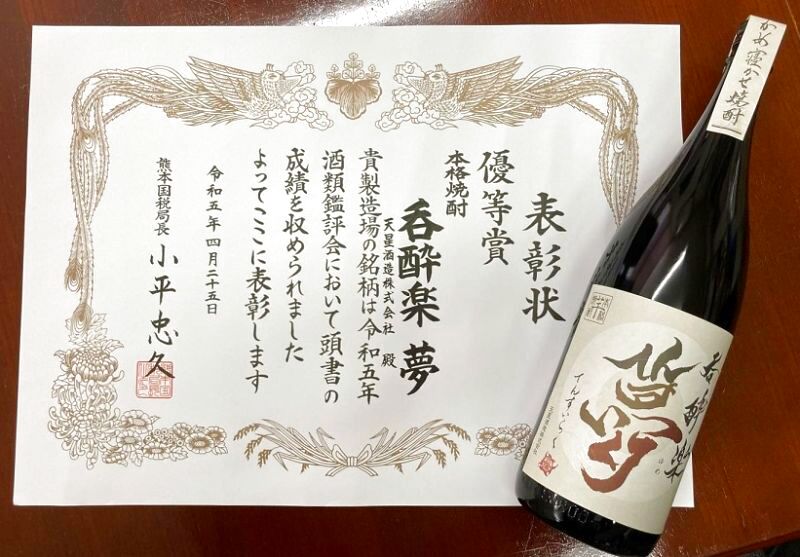 表彰状
優等賞
本格焼酎
呑酔楽 夢
天星酒造株式会社 殿
貴製造場の銘柄は令和五年
酒類鑑評会において頭書の
成績を収められました
よってここに表彰します
令和五年四月二十五日
熊本国税局長 小平忠久
かめ寝かせ焼酎
呑酔楽
夢
てんすいらく